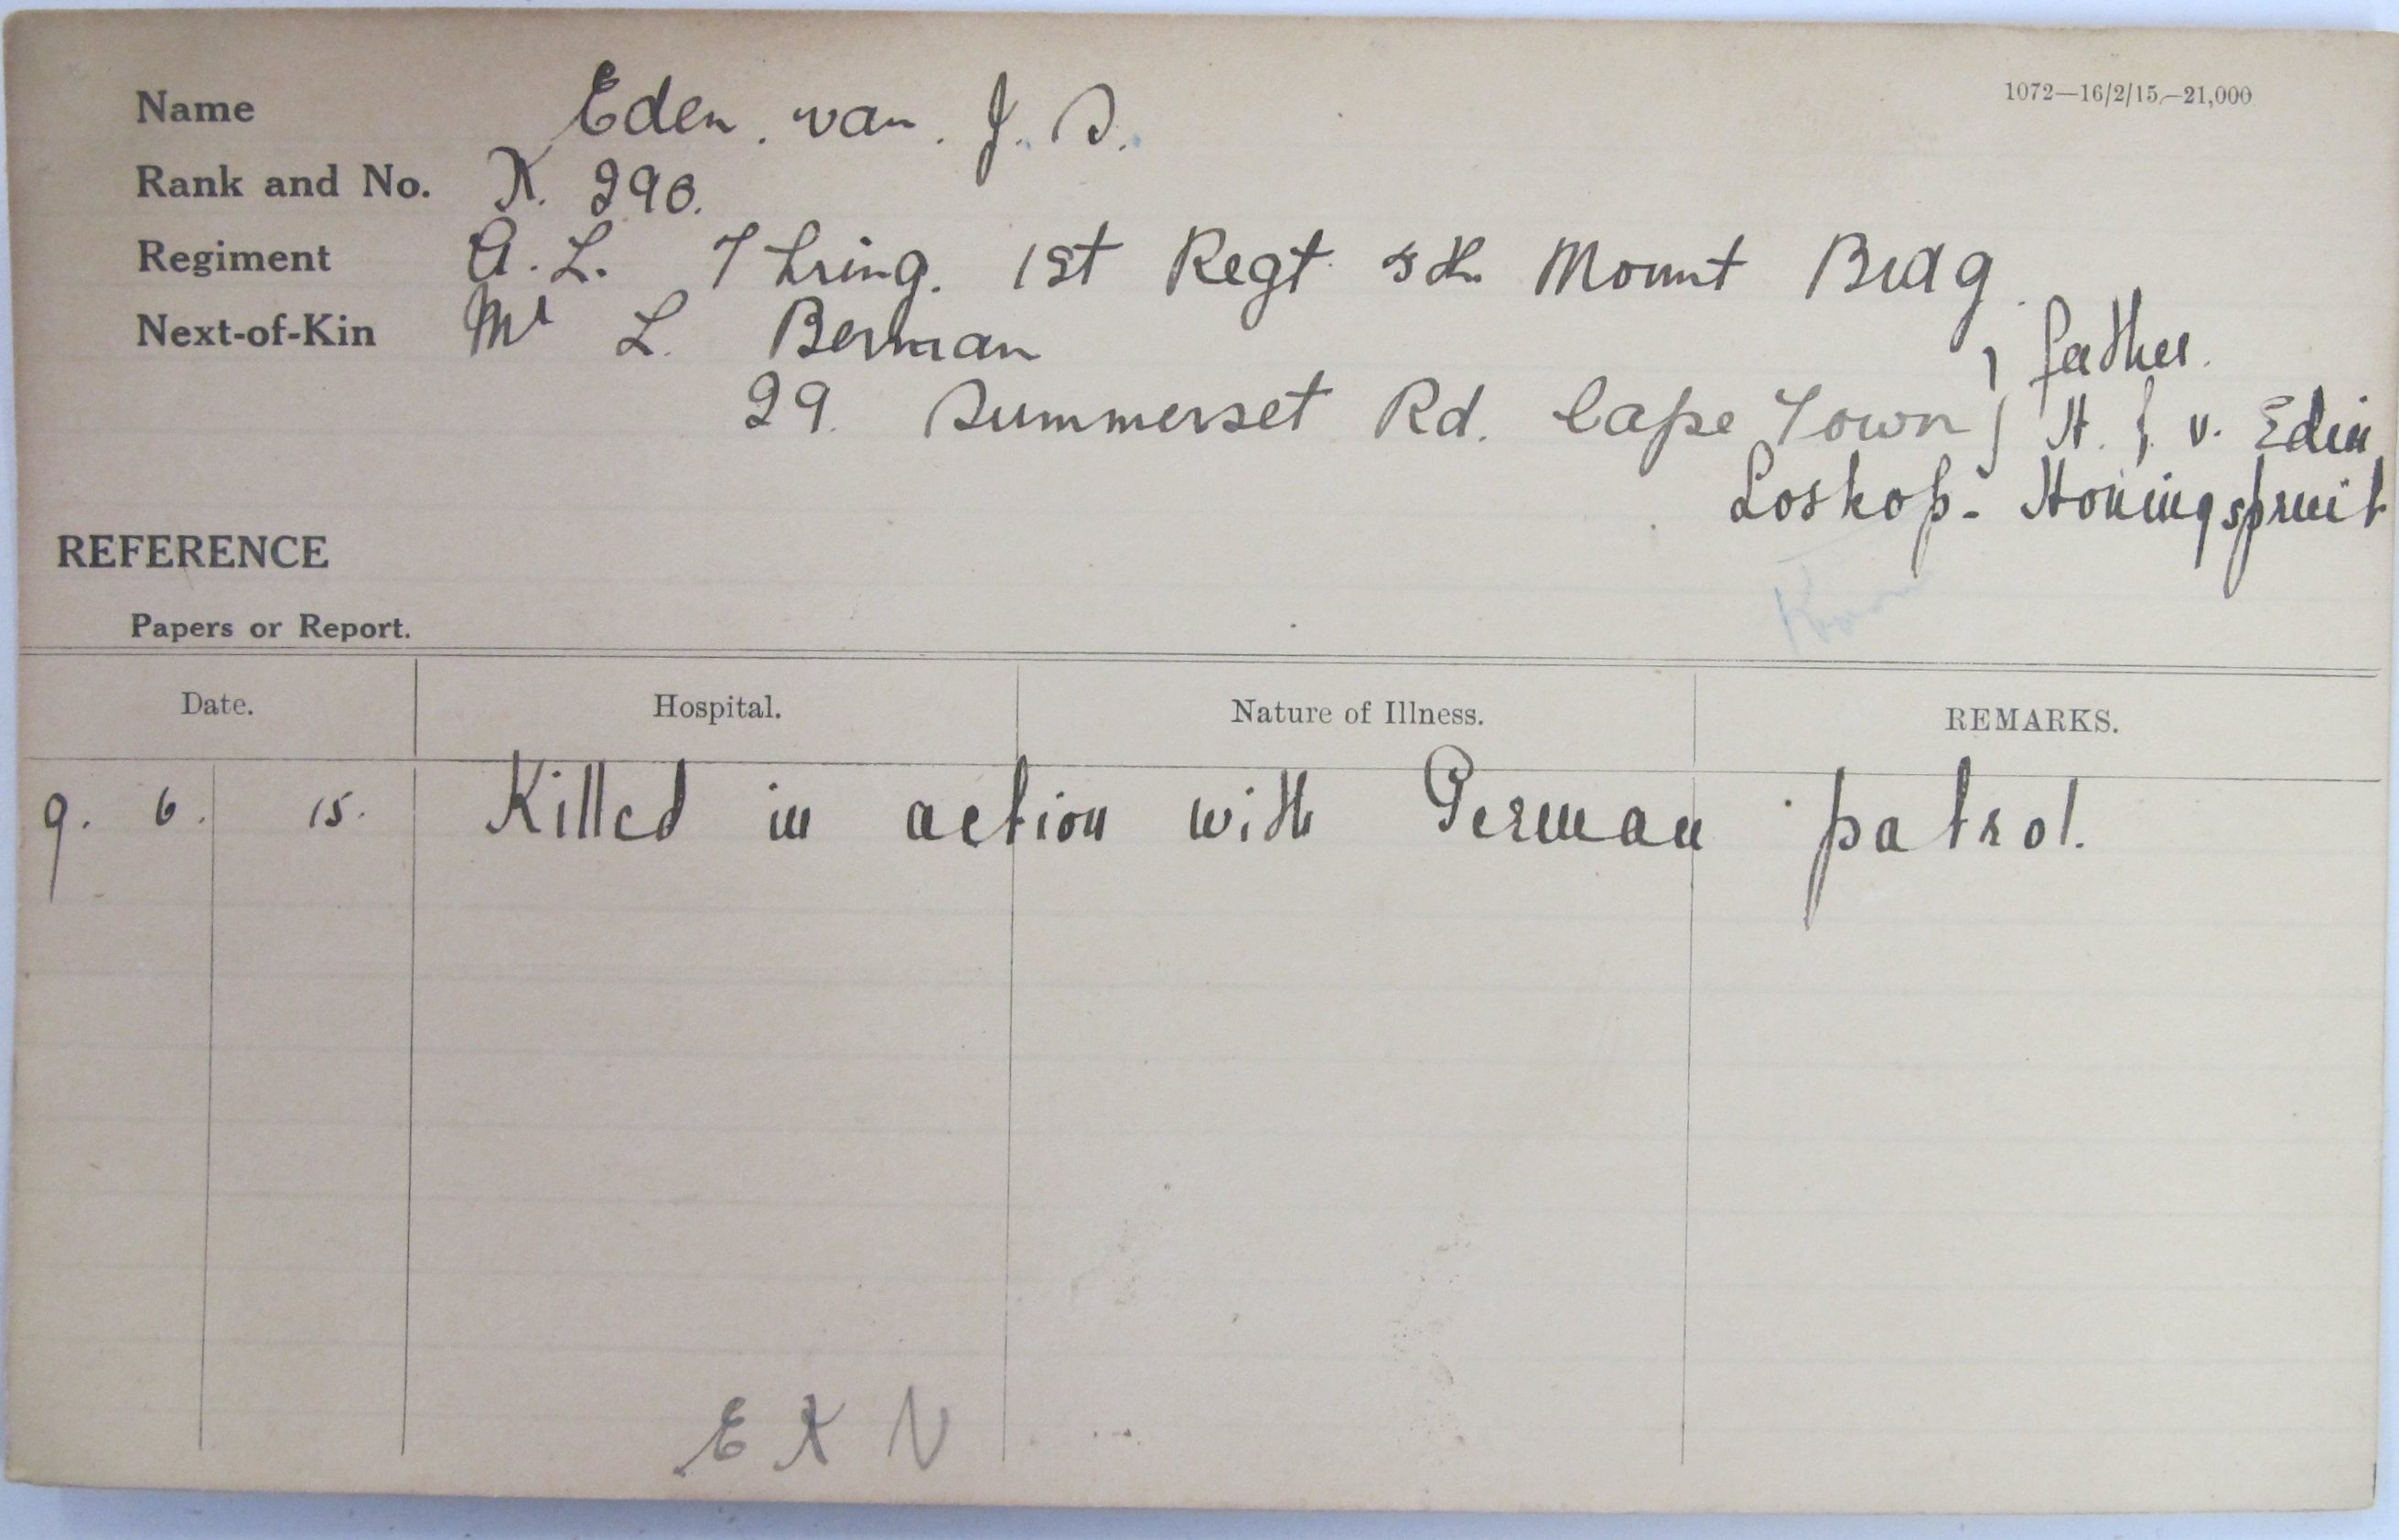 1072—16/2/15.—21,000
Name Eden. van. J. S.
Rank and No. K. 290.
Regiment A. L. Thring. 1st Regt 5th Mount Brdg.
Next-of-Kin Mr L. Berman
father.
29. Summerset Rd. Cape Town } H. J. v. Eden
Loskop - Honingspruit
REFERENCE
Papers or Report.
Date. Hospital. Nature of Illness. REMARKS.
9. 6. 15. Killed in action with German patrol.
E K N